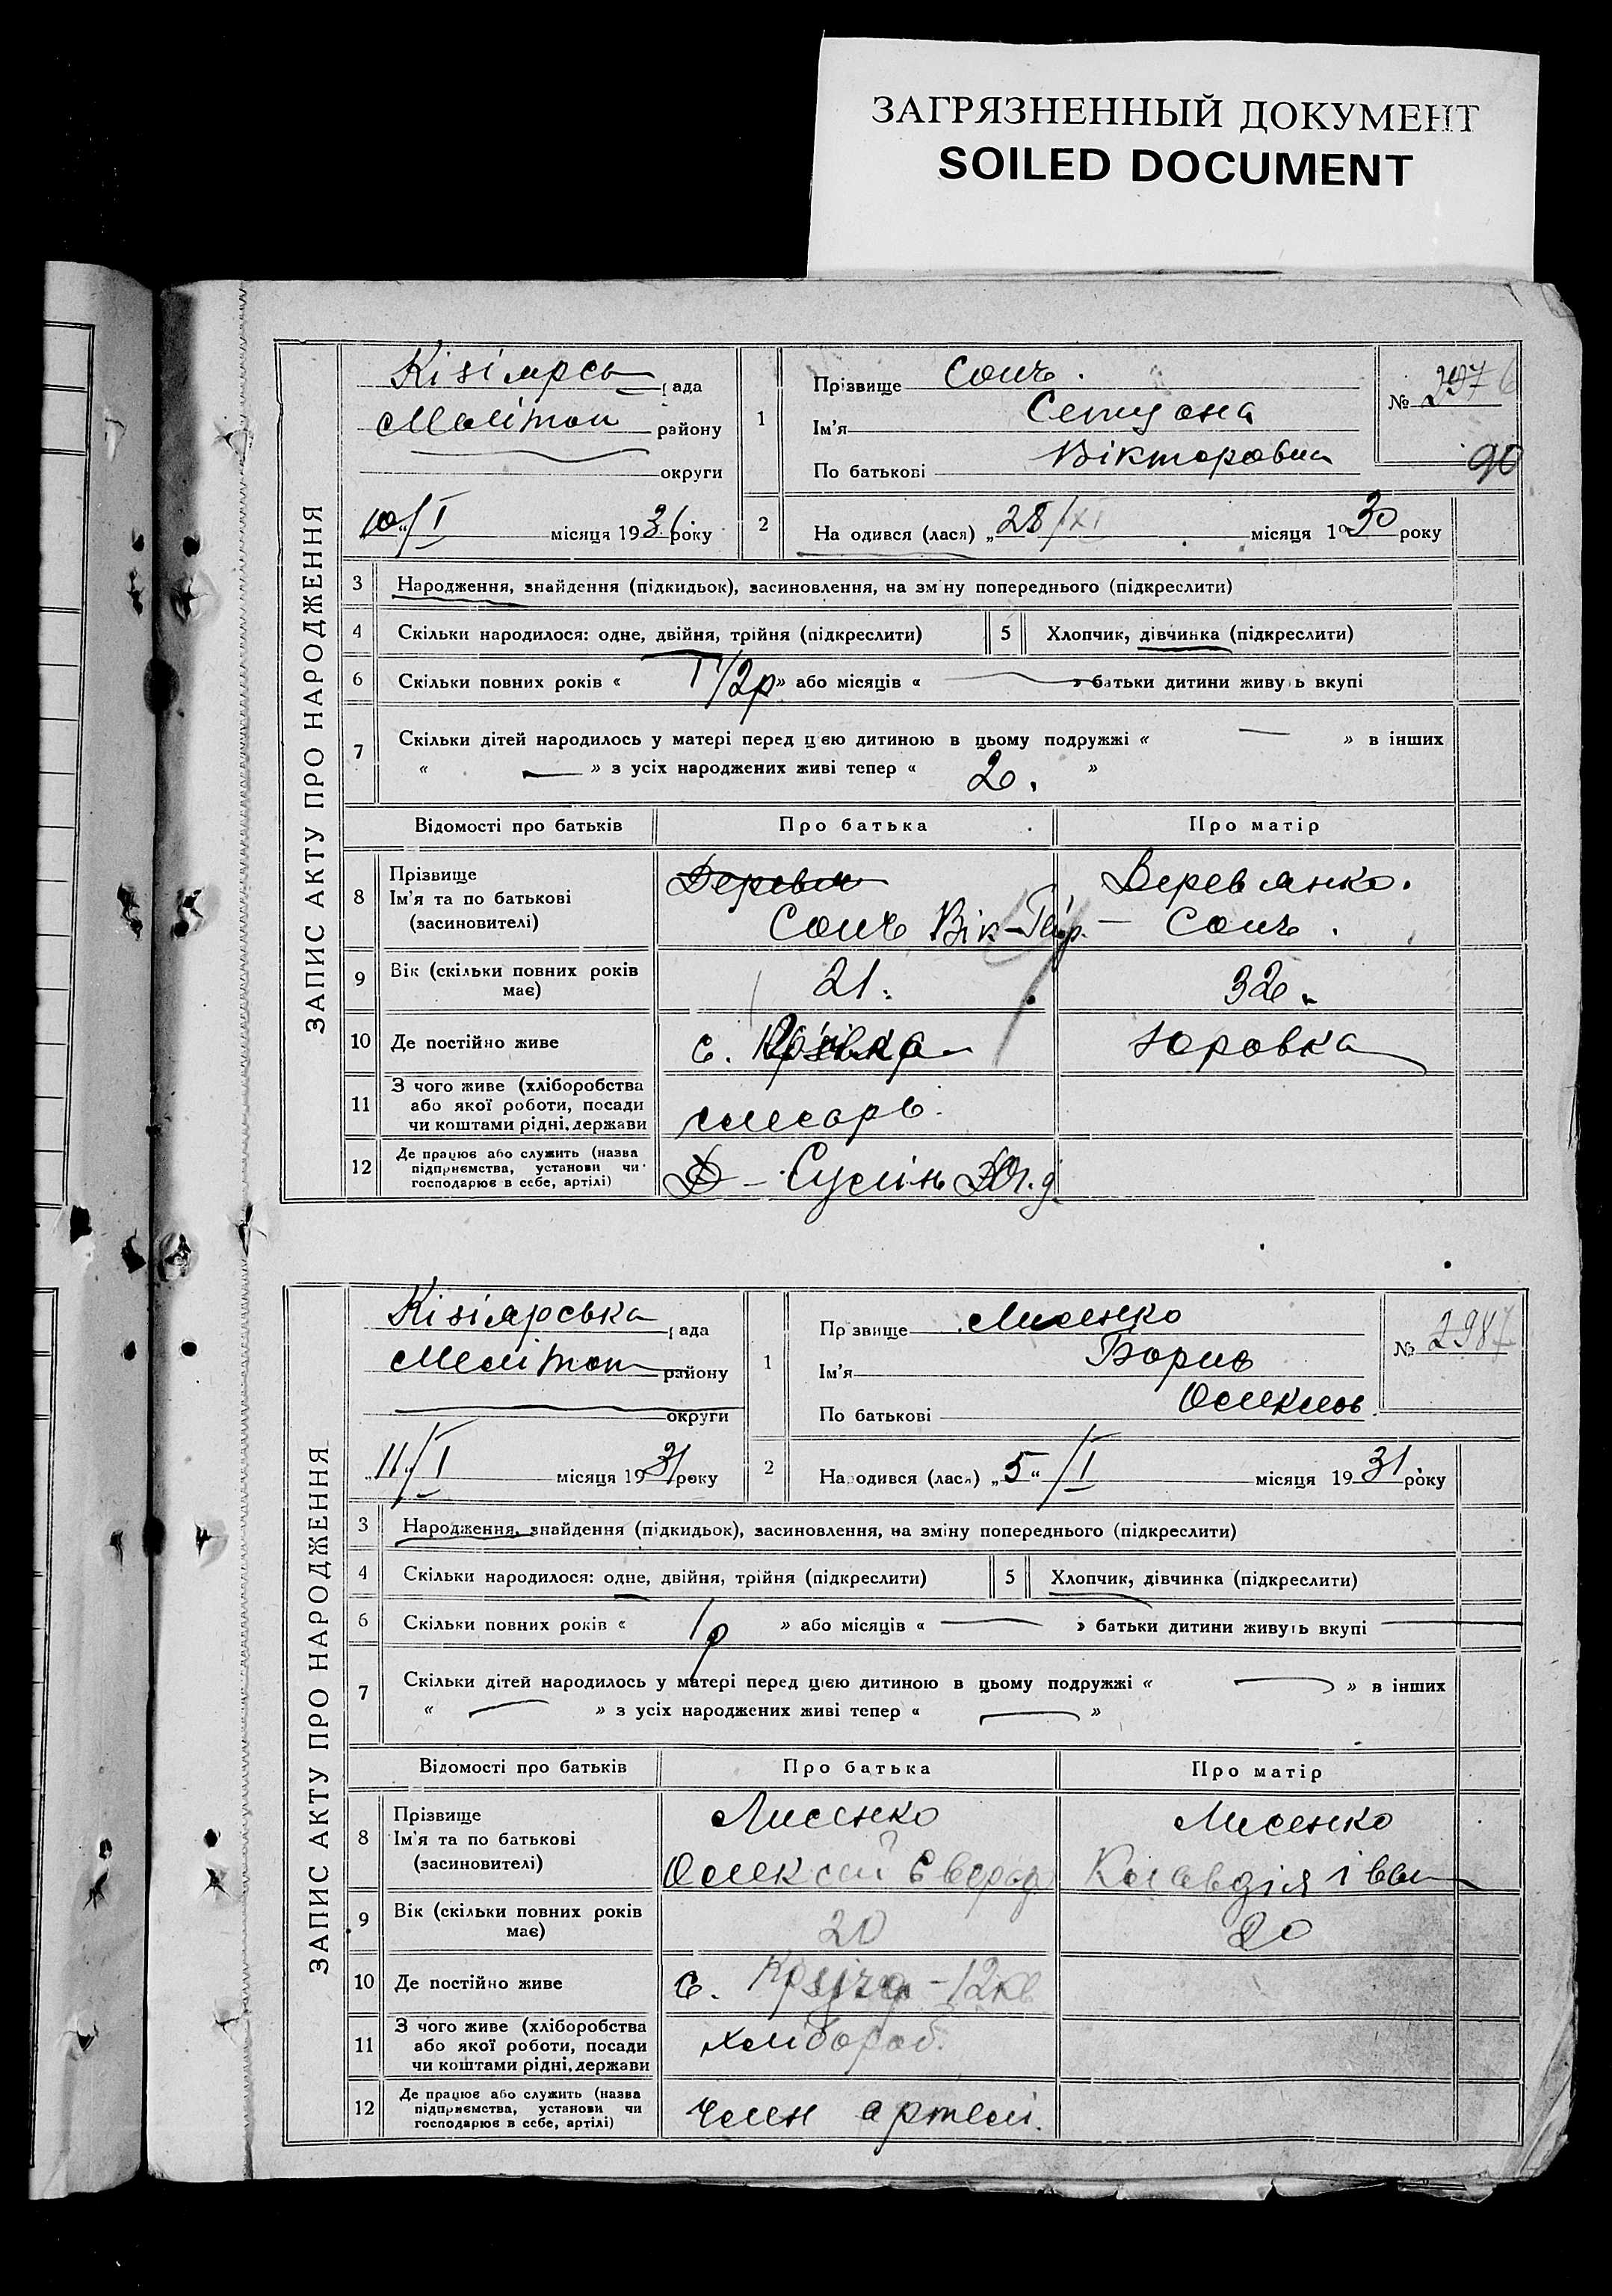 ЗАГРЯЗНЕННЫЙ ДОКУМЕНТ
SOILED DOCUMENT
ЗАПИС АКТУ ПРО НАРОДЖЕННЯ
Кізіярсь ада
Меліtоп району
округи
"10"/I місяця 1931 року
1
Прізвище Сонь.
Ім'я
По батькові Вікторовна
№ 297
90
2
На одився (лася) „28/XI місяця 1930 року
3 Народження, знайдення (підкидьок), засиновлення, на зм ну попереднього (підкреслити)
4 Скільки народилося: одне, двійня, трійня (підкреслити) 5 Хлопчик, дівчинка (підкреслити)
6 Скільки повних років « 1 1/2 р » або місяців « » батьки дитини живу ь вкупі
7 Скільки дітей народилось у матері перед цією дитиною в цьому подружжі « — » в інших
« — » з усіх народжених живі тепер « 2. »
Відомості про батьків Про батька Про матір
8 Прізвище
Ім'я та по батькові
(засиновителі)
Сонь Вік-
Деревянко.
– Сонь.
9 Вік (скільки повних років має) 21. 32.
10 Де постійно живе с. Юровка
11 З чого живе (хліборобства або якої роботи, посади чи коштами рідні, держави слесарь.
12 Де працює або служить (назва підприємства, установи чи господарює в себе, артілі)
ЗАПИС АКТУ ПРО НАРОДЖЕННЯ
Кізіярська ада
Меліtоп району
округи
„11"/I місяця 1931 року
1
Пр звище Лисенко
Ім'я Борис
По батькові Олексієв
№ 298
2
Народився (лася) „5"/I місяця 1931 року
3 Народження, знайдення (підкидьок), засиновлення, на зміну попереднього (підкреслити)
4 Скільки народилося: одне, двійня, трійня (підкреслити) 5 Хлопчик, дівчинка (підкреслити)
6 Скільки повних років « 1 р » або місяців « — » батьки дитини живуть вкупі —
7 Скільки дітей народилось у матері перед цією дитиною в цьому подружжі « — » в інших
« — » з усіх народжених живі тепер « — »
Відомості про батьків Про батька Про матір
8 Прізвище
Ім'я та по батькові
(засиновителі)
Лисенко Лисенко
Олексій Клавдія Іван
9 Вік (скільки повних років має) 20 20
10 Де постійно живе с.
11 З чого живе (хліборобства або якої роботи, посади чи коштами рідні, держави хлібороб.
12 Де працює або служить (назва підприємства, установи чи господарює в себе, артілі) член артелі.